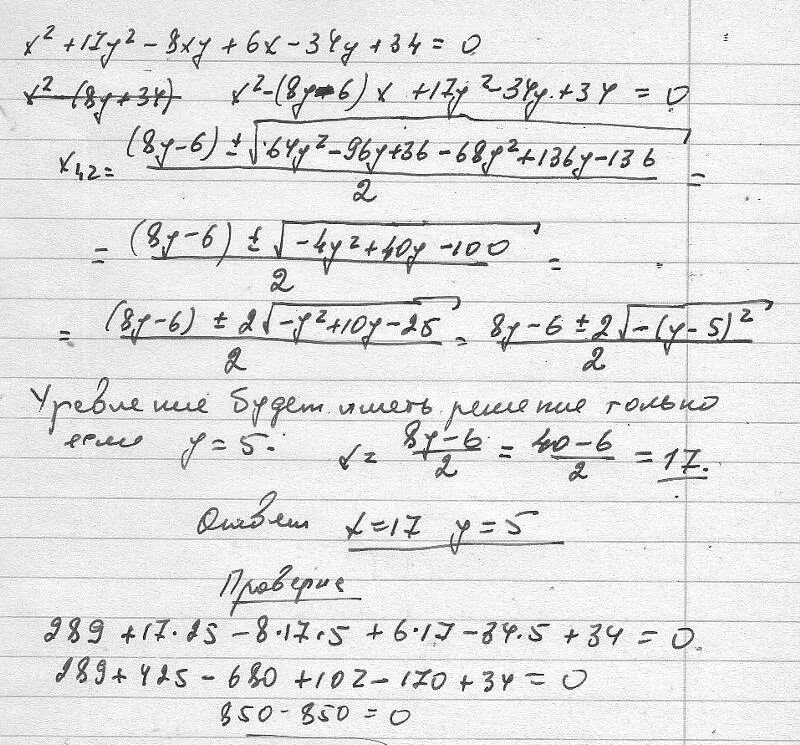 x² + 17y² - 8xy + 6x - 34y + 34 = 0
x² - (8y + 34) x² - (8y - 6) x + 17y² - 34y + 34 = 0
x₁,₂ = ((8y - 6) ± √(64y² - 96y + 36 - 68y² + 136y - 136))/2 =
= ((8y - 6) ± √(-4y² + 40y - 100))/2 =
= ((8y - 6) ± 2√(-y² + 10y - 25))/2 = (8y - 6 ± 2√(-(y - 5)²))/2
Уревление будет иметь решение только
если y = 5. x = (8y - 6)/2 = (40 - 6)/2 = 17.
Ответ x = 17 y = 5
Проверка
289 + 17·25 - 8·17·5 + 6·17 - 34·5 + 34 = 0
289 + 425 - 680 + 102 - 170 + 34 = 0
850 - 850 = 0